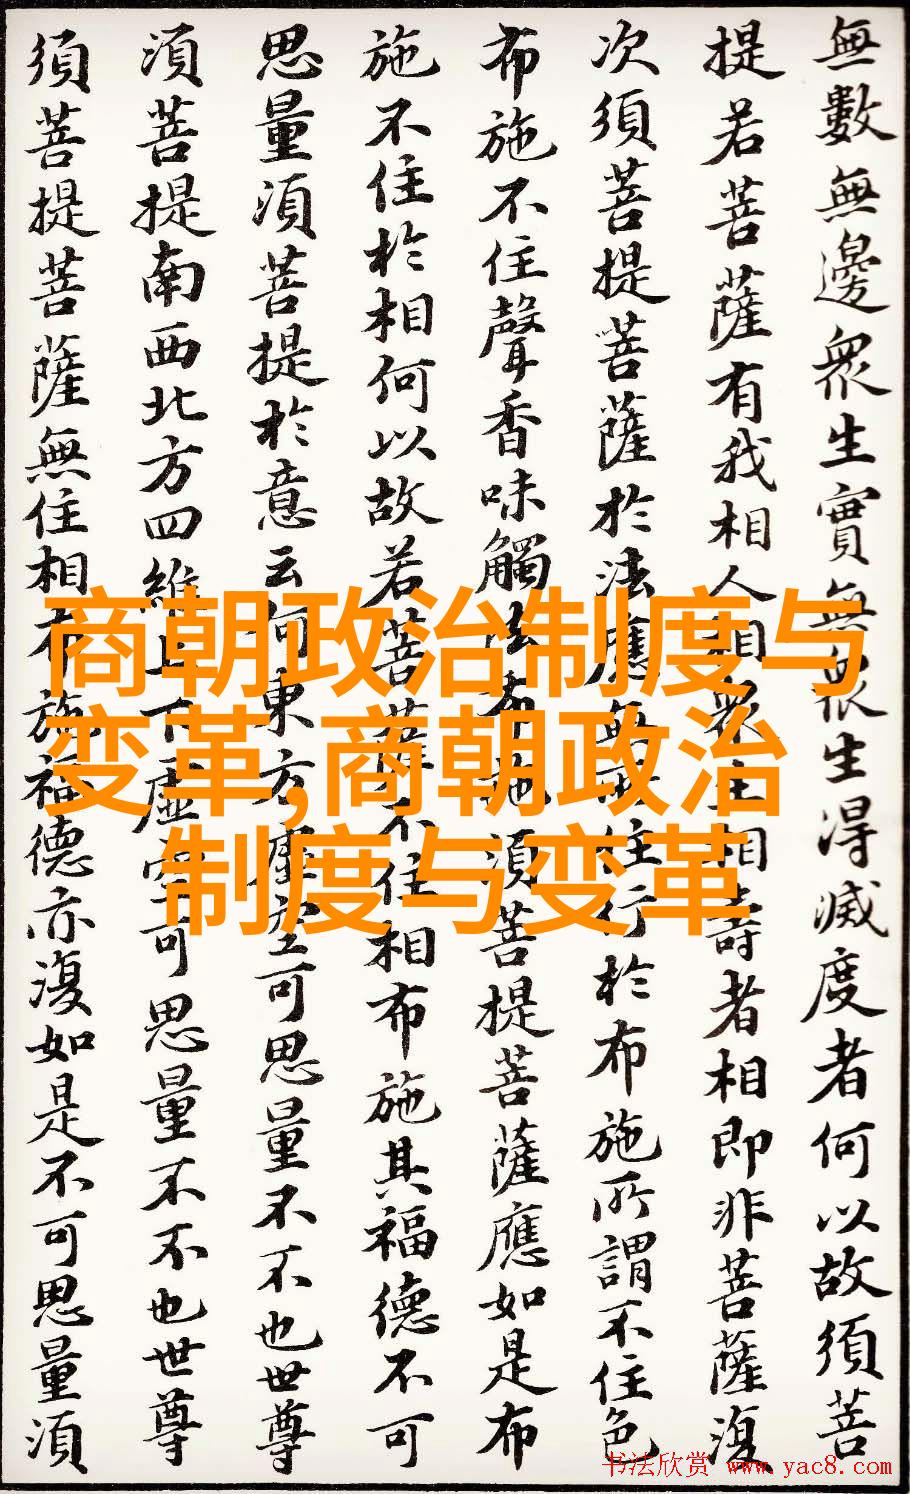 無數無邊眾生實無眾生得滅度者何以故須菩
提若菩薩有我相人相眾生相壽者相即非菩薩復
次須菩提菩薩於法應無所住行於布施所謂不住色
布施不住聲香味觸法布施須菩提菩薩應如是布
施不住於相何以故若菩薩不住相布施其福德不可
思量須菩提於意云何東方虛空可思量不不也世尊
須菩提南西北方四維上下虛空可思量不不也世尊
須菩提菩薩無住相布施福德亦復如是不可思量須
商朝政治制度与
变革,商朝政治
制度与变革
书法欣赏 www.yac8.com